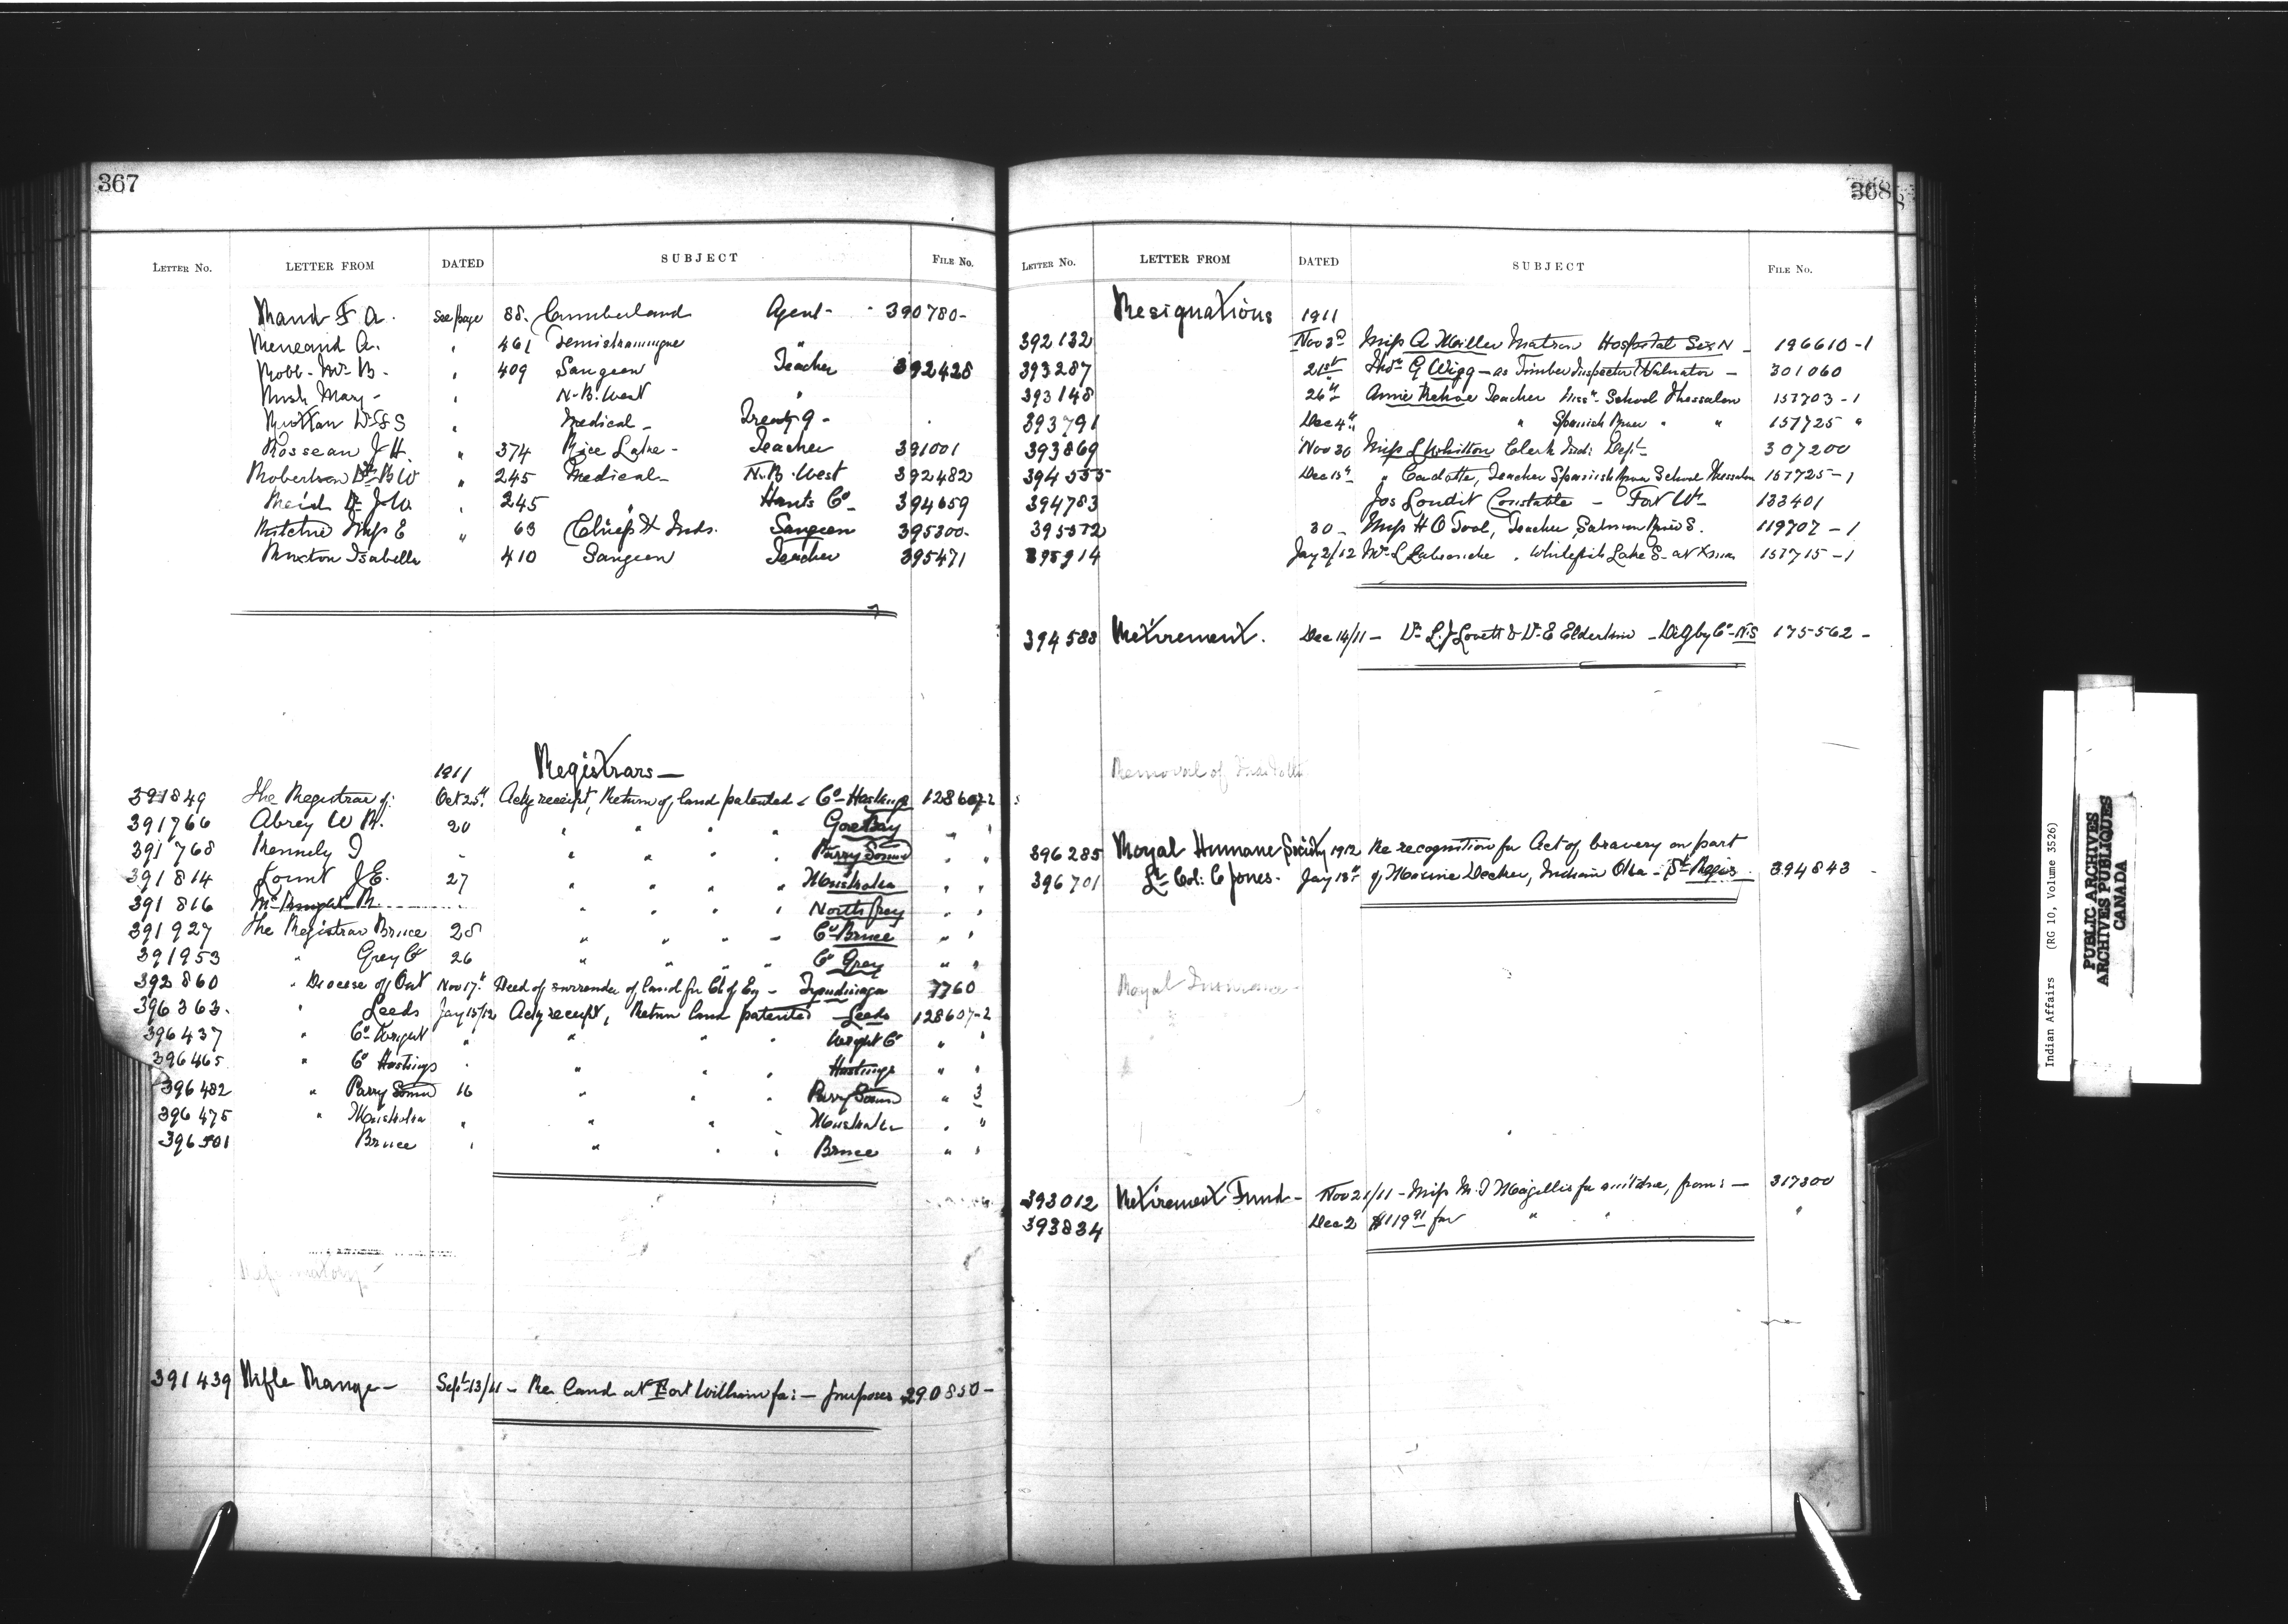 367
LETTER No. LETTER FROM DATED SUBJECT FILE No.
Rand F A. see page 88. Cumberland Agent - 390780-
Reneaud A. " 461 Temiskamingue "
Robb - Mr B - " 409 Saugeen Teacher 392428
Rush Mary - " N. B. West "
Dr S S " Medical - Treaty 9 -
Rosseau J H. " 374 Rice Lake - Teacher 391001
Robertson Dr B W " 245 Medical - N. B. West 392482
Reid Dr J W. " 245 " Hants Co - 394659
Ritchie Miss E " 63 Chiefs & Inds. Saugeen 395300-
Ruxton Isabella 410 Saugeen Teacher 395471
1911 Registrars -
391849 The Registrar of: Oct 25th Ackg receipt, Return of, land patented - Co - Hastings 128607-2
391766 Abrey W R. 20 " " " " Gore Bay " "
391768 Kennely I - " " " " Parry Sound " "
391814 Lount J. E. 27 " " " " Muskoka " "
391816 Mc Knight R. " " " " North Grey " "
391927 The Registrar Bruce 28 " " " - Co - Bruce " "
391953 " Grey Co 26 " " " " Co Grey " "
392860 " Diocese of Ont Nov 17th Deed of surrender of land for Ch of Eng - Tyendinaga 7760
396363. " Leeds Jany 15/12 Ackg receipt, Return land patented Leeds 128607-2
396437 " Co - Wright " " " " Wright Co " "
396465 " Co Hastings " " " " Hastings " "
396482 " Parry Sound 16 " " " Parry Sound " 3
396475 " Muskoka " " " " Muskoka " "
396501 Bruce " " " " Bruce " "
391439 Rifle Range - Sept 13/11 - Re Land at Fort William for: - purposes 290850-
368
LETTER No. LETTER FROM DATED SUBJECT FILE No.
Resignations 1911
392132 Nov 3rd Miss A Miller Matron Hospital Six N - 196610-1
393287 21st Thos G Wigg - as Timber Inspector & Valuator - 301060
393148 26th Annie Kehoe Teacher Miss n School Thessalon 157703-1
393791 Dec 4th " Spanish River " " 157725 "
393869 Nov 30 Miss L Whitton Clerk Ind: Dept - 307200
394555 Dec 15th " Cadotte, Teacher Spanish River School Thessalon 157725-1
394783 Jos Loudit Constable - Fort Wm 133401
395572 30 - Miss H O Tool, Teacher, Salmon River S. 119707-1
395914 Jany 2/12 Mr L , Whitefish Lake S - 157715-1
394588 Retirement. Dec 14/11 - Dr L. J Lovett & Dr E Elderkin - Digby Co - N.S 175562 -
Removal of
396285 Royal Humane Society 1912 Re recognition for Act of bravery on part
396701 Lt Col: C Jones - Jany 18th of Decker, Indian Oka - St Regis 394843
Royal Insurance -
393012 Retirement Fund - Nov 21/11 - Miss M. I for , from: - 317300
393834 Dec 2 $119 91 for " " "
Indian Affairs (RG 10, Volume 3526)
PUBLIC ARCHIVES
ARCHIVES PUBLIQUES
CANADA